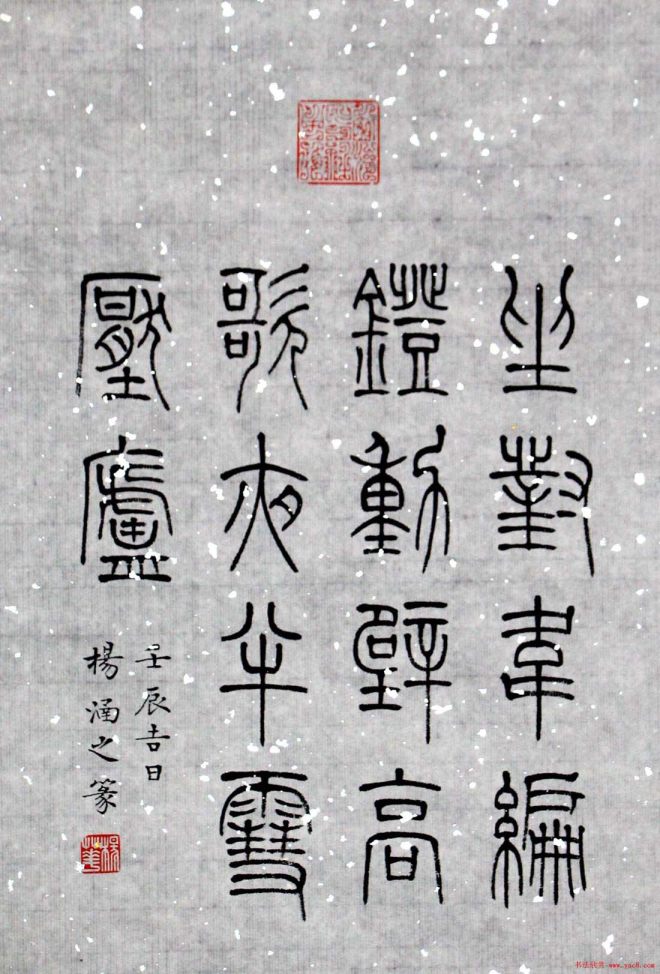 坐對韋編
鐙動壁高
歌夜半雪
壓廬
壬辰吉日
楊涵之篆
书法欣赏-www.yac8.com